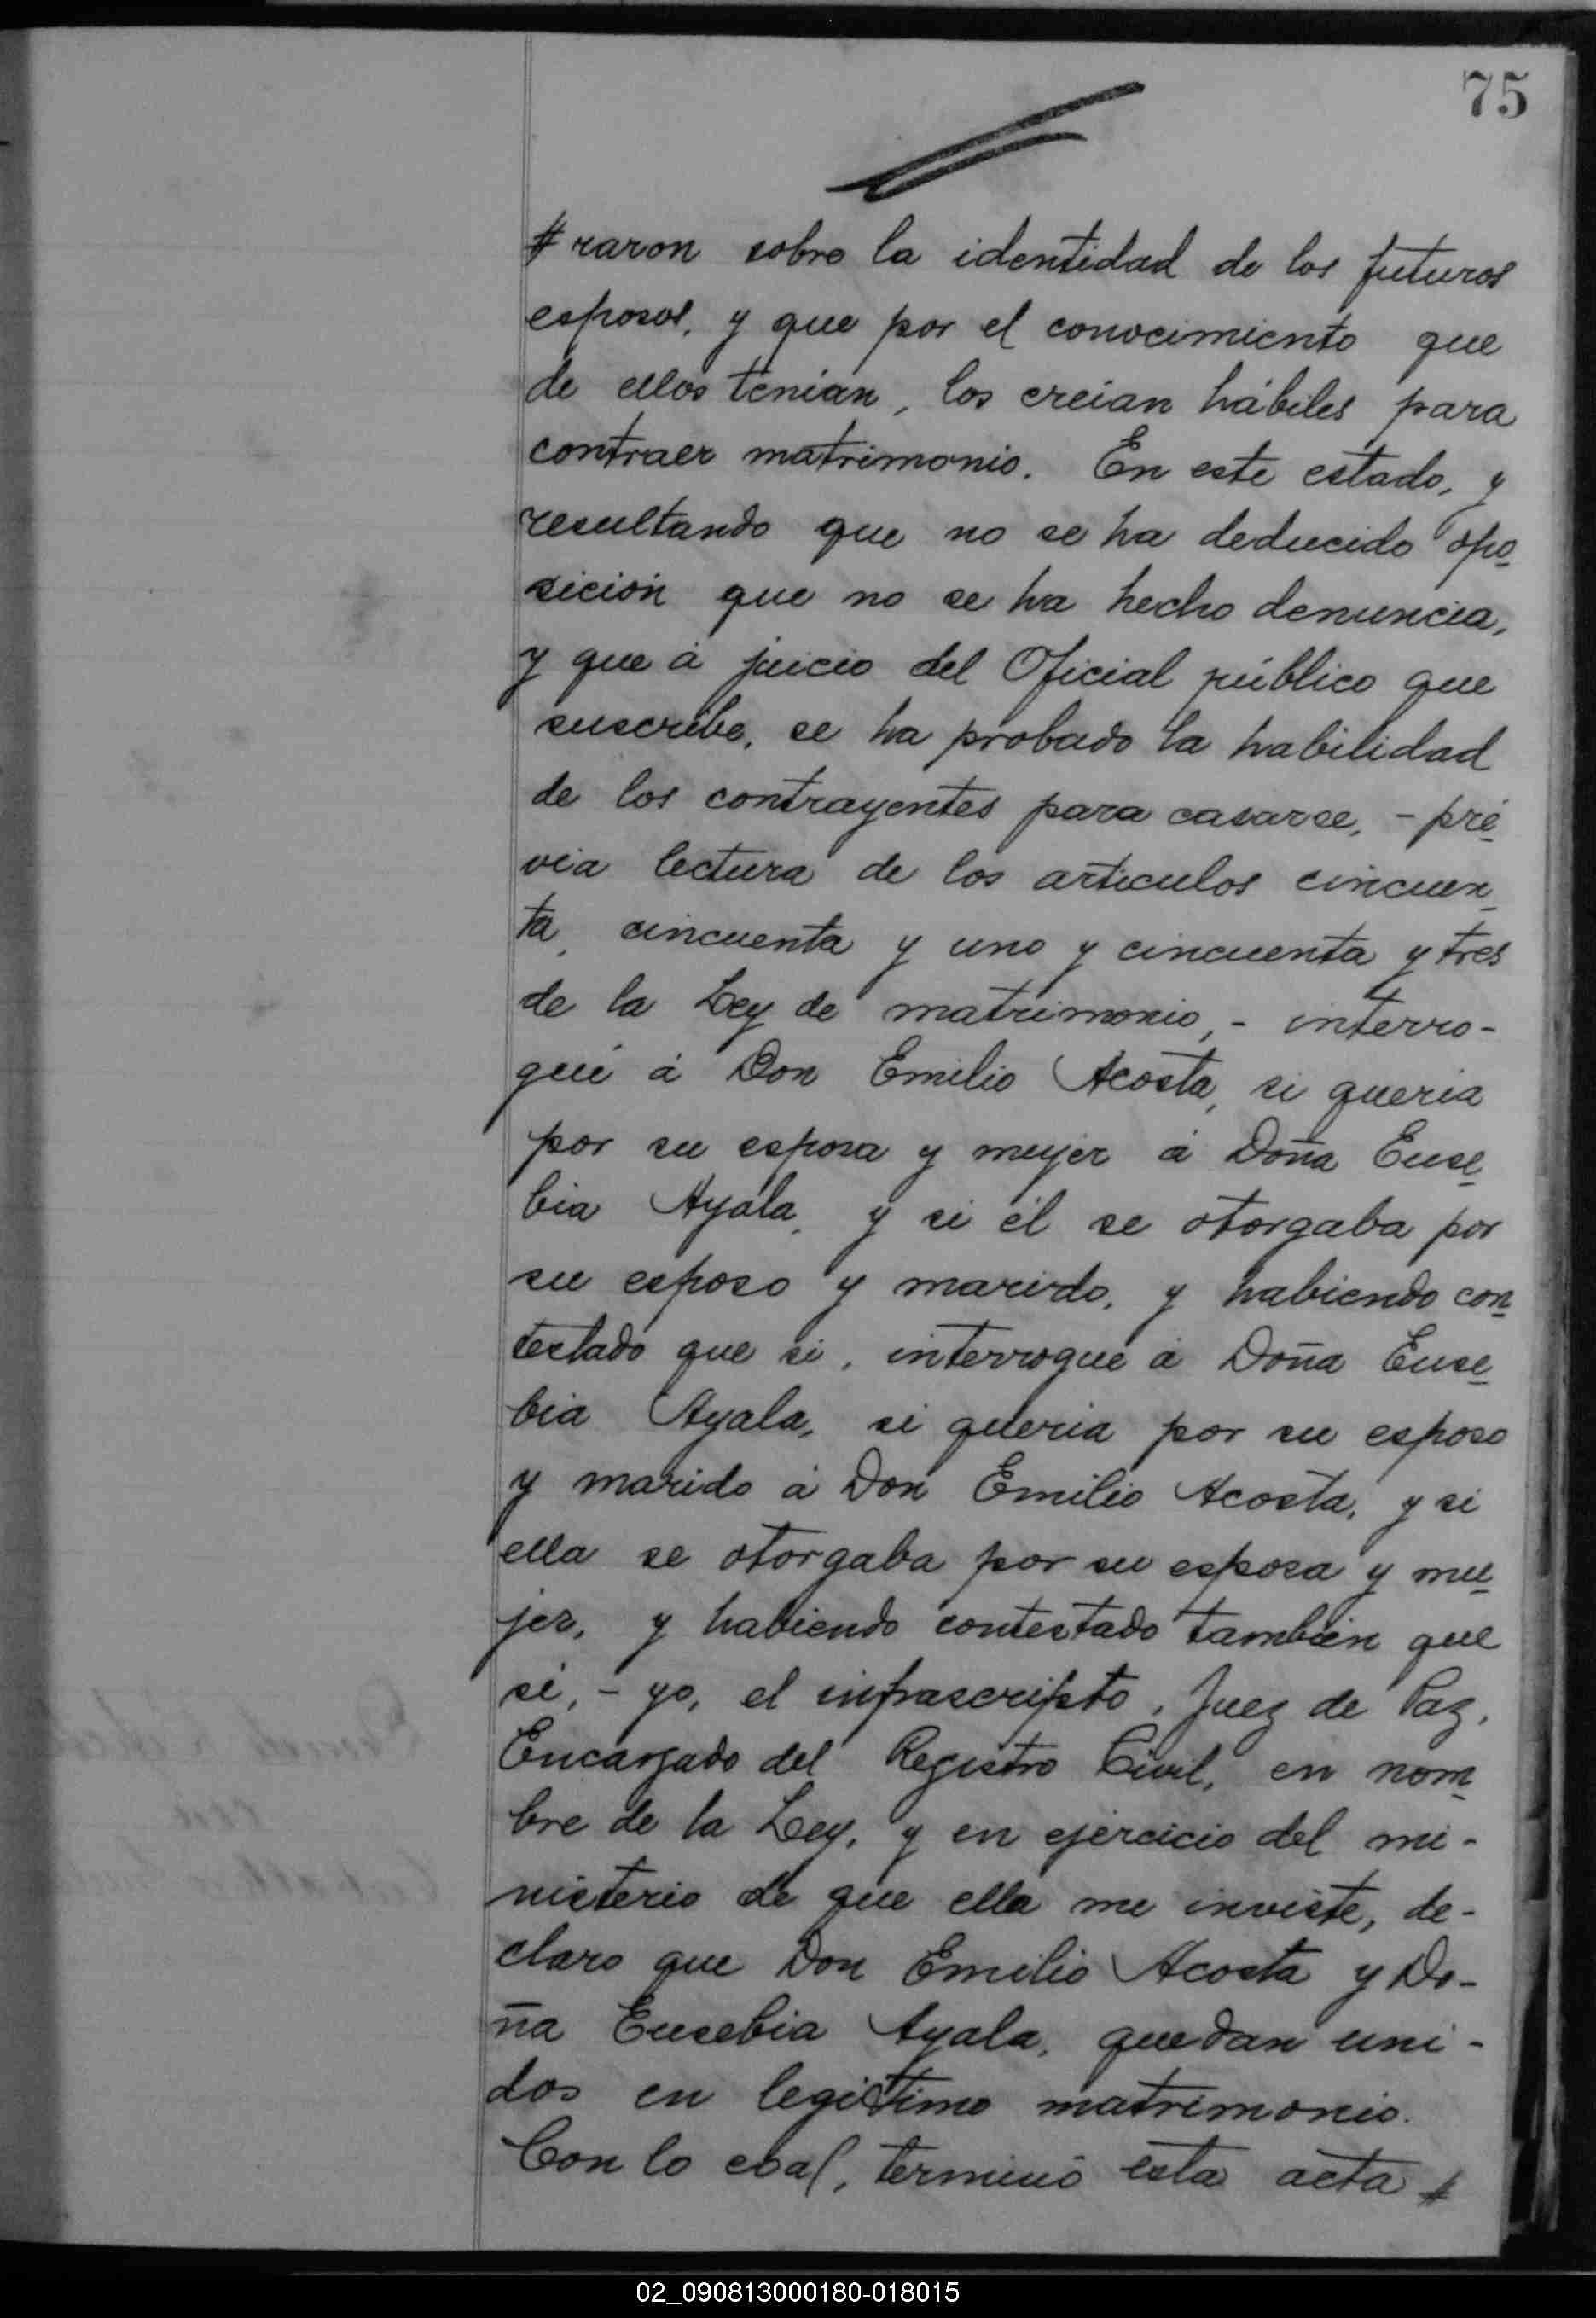 75
# raron sobre la identidad de los futuros
esposos, y que por el conocimiento que
de ellos tenían, los creian hábiles para
contraer matrimonio. En este estado, y
resultando que no se ha deducido opo
sición que no se ha hecho denuncia,
y que á juicio del Oficial público que
suscribe, se ha probado la habilidad
de los contrayentes para casarse, - pré
via lectura de los articulos cincuen
ta, cincuenta y uno y cincuenta y tres
de la Ley de matrimonio, - interro-
gué á Don Emilio Acosta, si queria
por su esposa y mujer á Doña Euse
bia Ayala, y si él se otorgaba por
su esposo y marido, y habiendo con
testado que si, interrogué á Doña Euse
bia Ayala, si queria por su esposo
y marido á Don Emilio Acosta, y si
ella se otorgaba por su esposa y mu
jer, y habiendo contestado también que
si, - yo, el infrascripto, Juez de Paz,
Encargado del Registro Civil, en nom
bre de la Ley, y en ejercicio del mi-
nisterio de que ella me inviste, de-
claro que Don Emilio Acosta y Do-
ña Eusebia Ayala, quedan uni-
dos en legitimo matrimonio.
Con lo cual, terminó esta acta #
02_090813000180-018015